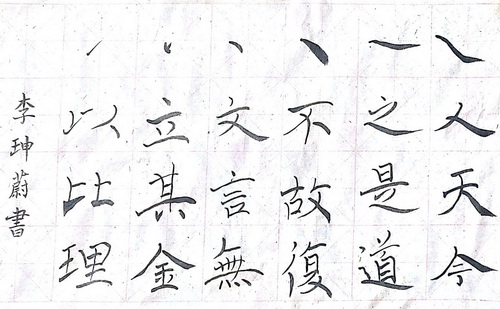 ㇏人天今
㇏之是道
丶不故復
丶文言無
丶立某金
㇀以比理
李珅蔚書